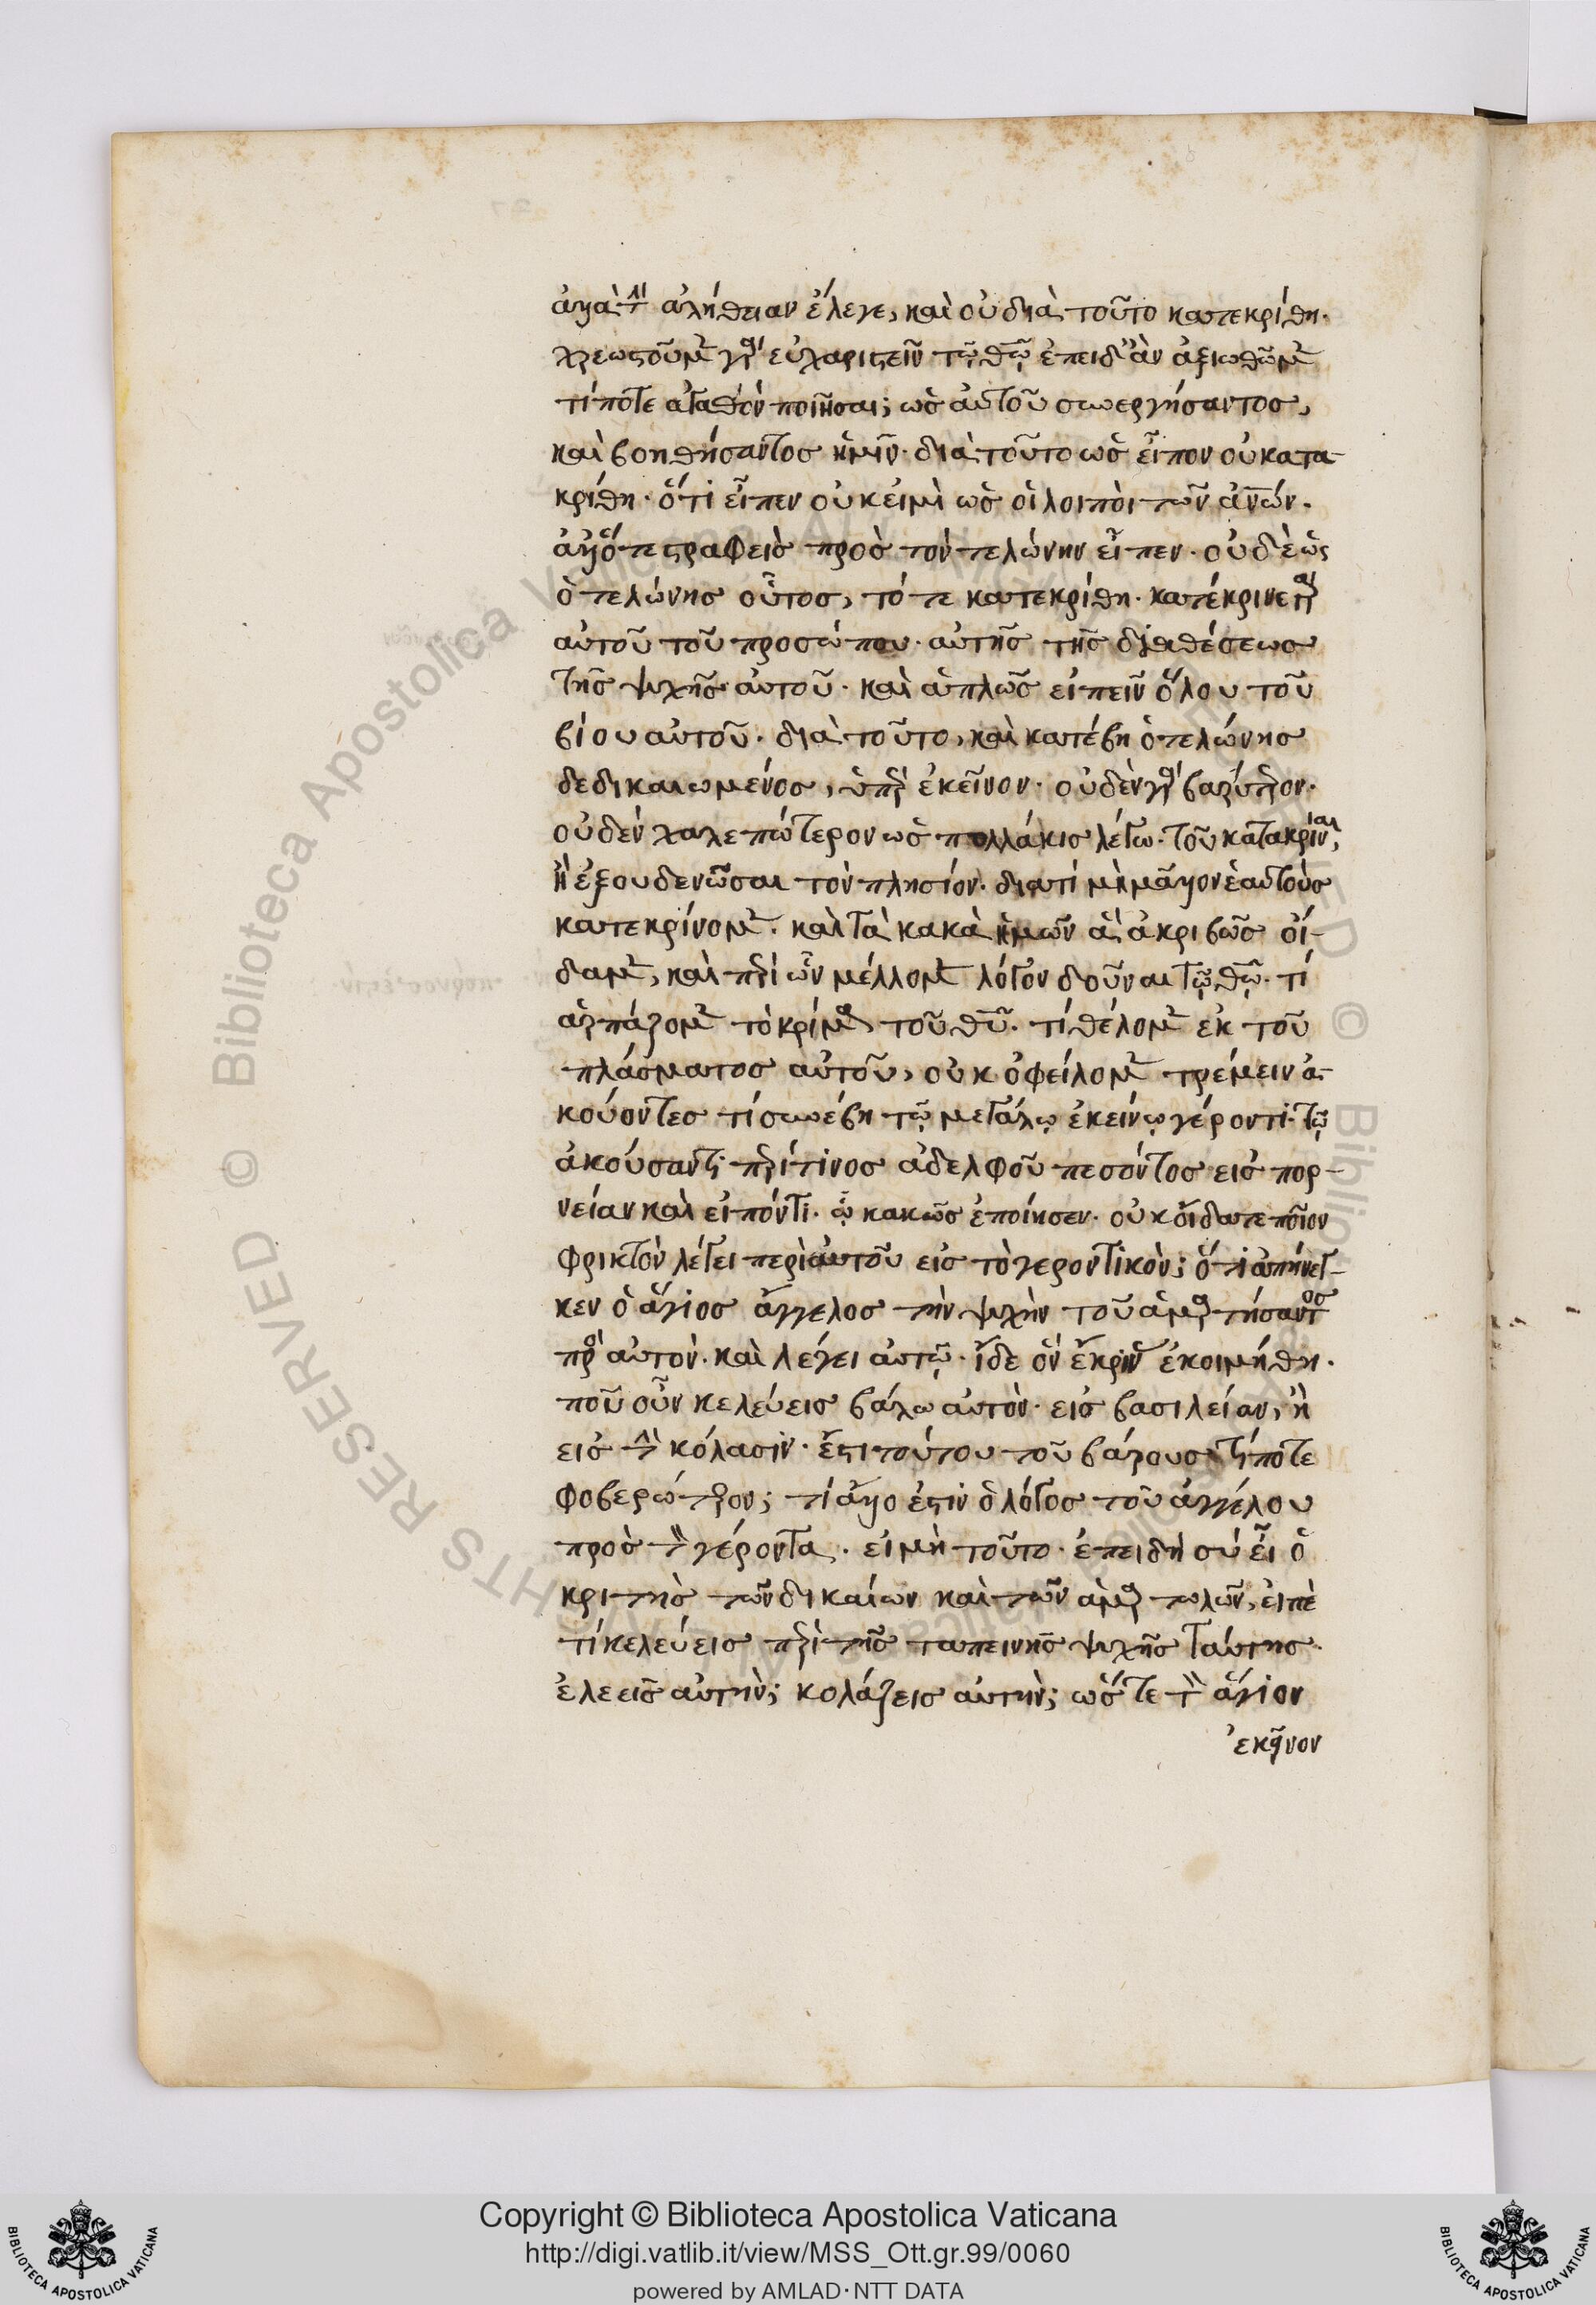 ἀλλὰ τὴν ἀλήθειαν ἔλεγε, καὶ οὐ διὰ τοῦτο κατεκρίθη.
χρεωστοῦμεν γὰρ εὐχαριστεῖν τῷ θῷ ἐπειδὰν ἀξιωθῶμεν
τίποτε ἀγαθὸν ποιῆσαι; ὡς αὐτοῦ συνεργήσαντος,
καὶ βοηθήσαντος ἡμῖν. διὰ τοῦτο ὡς εἶπον οὐ κατα-
κρίθη. ὅτι εἶπεν οὐκ εἰμὶ ὡς οἱ λοιποὶ τῶν ἀνῶν.
ἀλλ' ὅτε στραφεὶς πρὸς τὸν τελώνην εἶπεν. οὐδὲ ὡς
ὁ τελώνης οὗτος, τότε κατεκρίθη. κατέκρινε γὰρ
αὐτοῦ τοῦ προσώπου. αὐτῆς τῆς διαθέσεως
τῆς ψυχῆς αὐτοῦ. καὶ ἁπλῶς εἰπεῖν ὅλου τοῦ
βίου αὐτοῦ. διὰ τοῦτο, καὶ κατέβη ὁ τελώνης
δεδικαιωμένος, ὑπὲρ ἐκεῖνον. οὐδὲν γὰρ βαρύτερον.
οὐδὲν χαλεπώτερον ὡς πολλάκις λέγω. τοῦ κατακρῖναι,
ἢ ἐξουδενῶσαι τὸν πλησίον. διατί μὴ μᾶλλον ἑαυτοὺς
κατεκρίνομεν. καὶ τὰ κακὰ ἡμῶν ἃ ἀκριβῶς οἴ-
δαμεν, καὶ περὶ ὧν μέλλομεν λόγον δοῦναι τῷ θῷ. τί
ἁρπάζομεν τὸ κρίμα τοῦ θῦ. τί θέλομεν ἐκ τοῦ
πλάσματος αὐτοῦ, οὐκ ὀφείλομεν τρέμειν ἀ-
κούοντες τί συνέβη τῷ μεγάλῳ ἐκείνῳ γέροντι. τῷ
ἀκούσαντι περί τινος ἀδελφοῦ πεσόντος εἰς πορ-
νείαν καὶ εἰπόντι. ᾧ κακῶς ἐποίησεν. οὐκ οἴδατε ποῖον
φρικτὸν λέγει περὶ αὐτοῦ εἰς τὸ γεροντικὸν; ὅτι ἀπήνεγ-
κεν ὁ ἅγιος ἄγγελος τὴν ψυχὴν τοῦ ἁμαρτήσαντος
πρὸς αὐτὸν. καὶ λέγει αὐτῷ. ἴδε ὃν ἔκρινας ἐκοιμήθη.
ποῦ οὖν κελεύεις βάλω αὐτὸν. εἰς βασιλείαν, ἢ
εἰς τὴν κόλασιν. ἔστι τούτου τοῦ βάρους τίποτε
φοβερώτερον; τί ἄλλο ἐστὶν ὁ λόγος τοῦ ἀγγέλου
πρὸς τὸν γέροντα. εἰ μὴ τοῦτο. ἐπειδὴ σὺ εἶ ὁ
κριτὴς τῶν δικαίων καὶ τῶν ἁμαρτωλῶν, εἰπὲ
τί κελεύεις περὶ τῆς ταπεινῆς ψυχῆς ταύτης.
ἐλεεῖς αὐτὴν; κολάζεις αὐτὴν; ὥστε τὸν ἅγιον
ἐκεῖνον
Copyright © Biblioteca Apostolica Vaticana
http://digi.vatlib.it/view/MSS_Ott.gr.99/0060
powered by AMLAD·NTT DATA